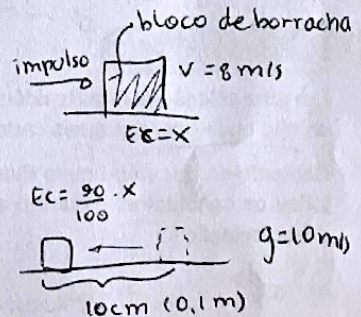 bloco de borracha
impulso
V = 8 m/s
Ec = X
Ec = 90/100 . X
g = 10 m/s
10cm (0,1 m)